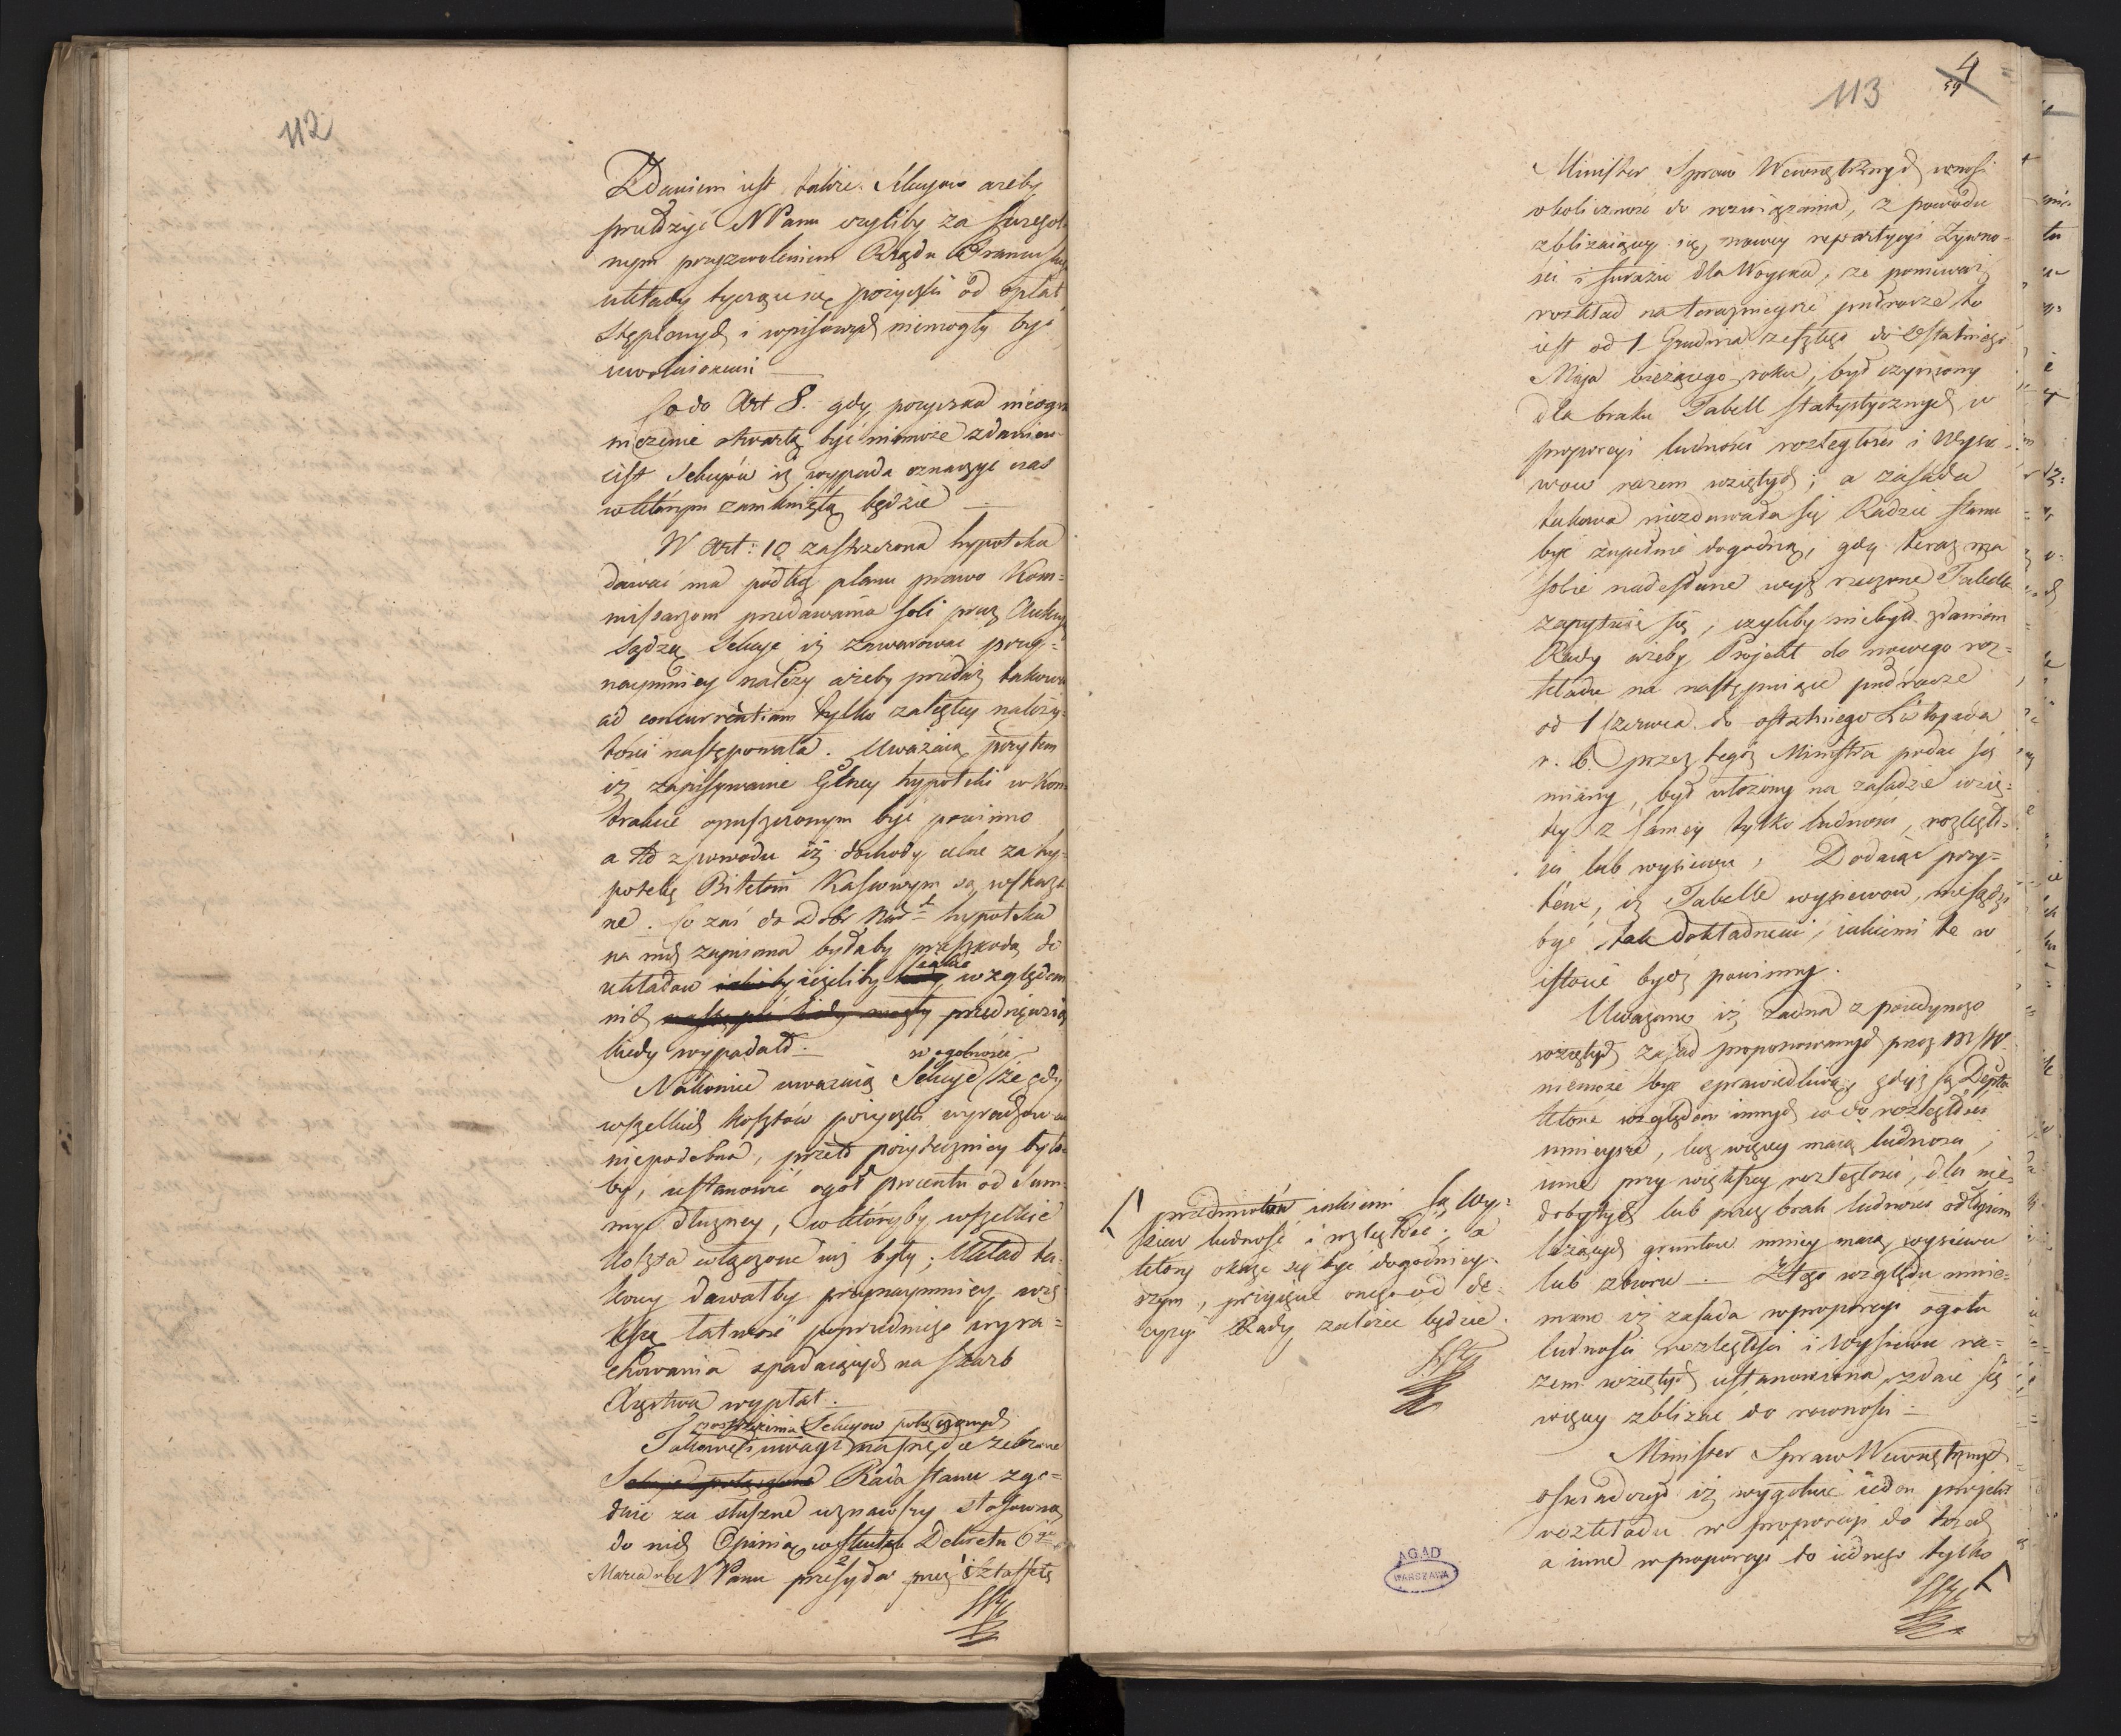 112
Zdaniem iest także Sekcyow ażeby
przełżyć NPanu czyliby za szczegól
nym przyzwoleniem Rządu Francusk
układy tyczące się pożyczki od opłat
stęplowych i wpisowych niemogły być
uwolnionemi
Co do Art 8. gdy pożyczka nieogra
niczenie otwartą być niemoże zdaniem
iest Sekcyów iż wypada oznaczyć czas
w którym zamkniętą będzie
W Art: 10 zastrzeżona hypoteka
dawać ma podług planu prawo Kom=
missarzom przedawania soli przez Aukcyą
Sądzą Sekcye iż zawarować przy=
naymniey należy ażeby przedaż takowa
ad concurrentiam tylko zaległey należy=
tości następowała. Uważaią przytem
iż zapisywanie Celney hypoteki w Kon
trakcie opuszczonym być powinno
a to z powodu iż dochody celne za hy=
potekę Biletom Kassowym są wskaza
ne. Co zaś do Dóbr Nar hypoteka
na nich zapisana byłaby przeszkodą do
układów ieżeliby iakie względem
nich przedsięwziąść
kiedy wypadało.
Nakoniec uważaią Sekcye w ogólności że gdy
wszelkich kosztów pożyczki wyrachować
niepodobna, przeto pożyteczniey było
by, ustanowić ogół procentu od Sum=
my dłużney, w któryby wszelkie
koszta włączone iuż były; Układ ta=
kowy dawałby przynaymniey wię
kszą łatwość poprzedniego wyra=
chowania spadaiących na Skarb
Xięstwa wypłat.
z roztrząsienia Sekcyow połączonych
Takowe uwagi naprędce zebrane
Sekcye połączone Rada Stanu zgo=
dnie za słuszne uznawszy stosowną
do nich Opinią w skutek Dekretu 6go
Marca rb NPanu przesyła przez Sztaffetę
113
4
59
Minister Spraw Wewnętrznych wnosi
okoliczność do rozwiązania, z powodu
zbliżaiącey się, nowey repartycyi Żywno=
ści i furażu dla Woyska, że ponieważ
rozkład na teraźnieysze półrocze to
iest od 1 Grudnia zeszłego do Ostatniego
Maja bieżącego roku, był czyniony
dla braku Tabell statystycznych w
proporcyi ludności rozległości i Wysie=
wów razem wziętych; a zasada
takowa niezdawała się Radzie Stanu
być zupełnie dogodną, gdy teraz ma
sobie nadesłane wyż rzeczone Tabelle
zapytuie się, czyliby niebyło zdaniem
Rady ażeby Projekt do nowego roz=
kładu na następuiące półrocze
od 1 Czerwca do ostatniego Listopada
r. b. przez tegoż Ministra podać się
miany, był ułożony na zasadzie wzię=
tey z samey tylko ludności, rozległo=
ści lub wysiewu, Dodaiąc przy=
tem, iż Tabelle wysiewow, niesądzi
być tak dokładnemi, iakiemi te w
istocie być powinny.
Uważano iż żadna z poiedynczo
wziętych zasad proponowanych przez MSW
niemoże być sprawiedliwą, gdyż są Depta
które względem innych co do rozległości
mnieysze, lecz więcey maią ludności;
inne przy większey rozległości, dla nie=
dobytych lub przez brak ludności odłogiem
leżących gruntów mniey maią wysiewu
lub zbioru. Z tego względu mnie=
mano iż zasada w proporcyi ogółu
ludności rozległości i Wysiewu ra=
zem wziętych ustanowiona, zdaie się
więcey zbliżać do równości
Minister Spraw Wewnętrznych
oświadczył iż wygotuie ieden projekt
rozkładu w proporcyi do trzech
a inne w proporcyi do iednego tylko
przedmiotów iakiemi są Wy=
siew ludność i rozległość; a
który okaże się być dogodniey=
szym, przyięcie onego od de=
cyzyi Rady zależeć będzie.
AGAD
WARSZAWA